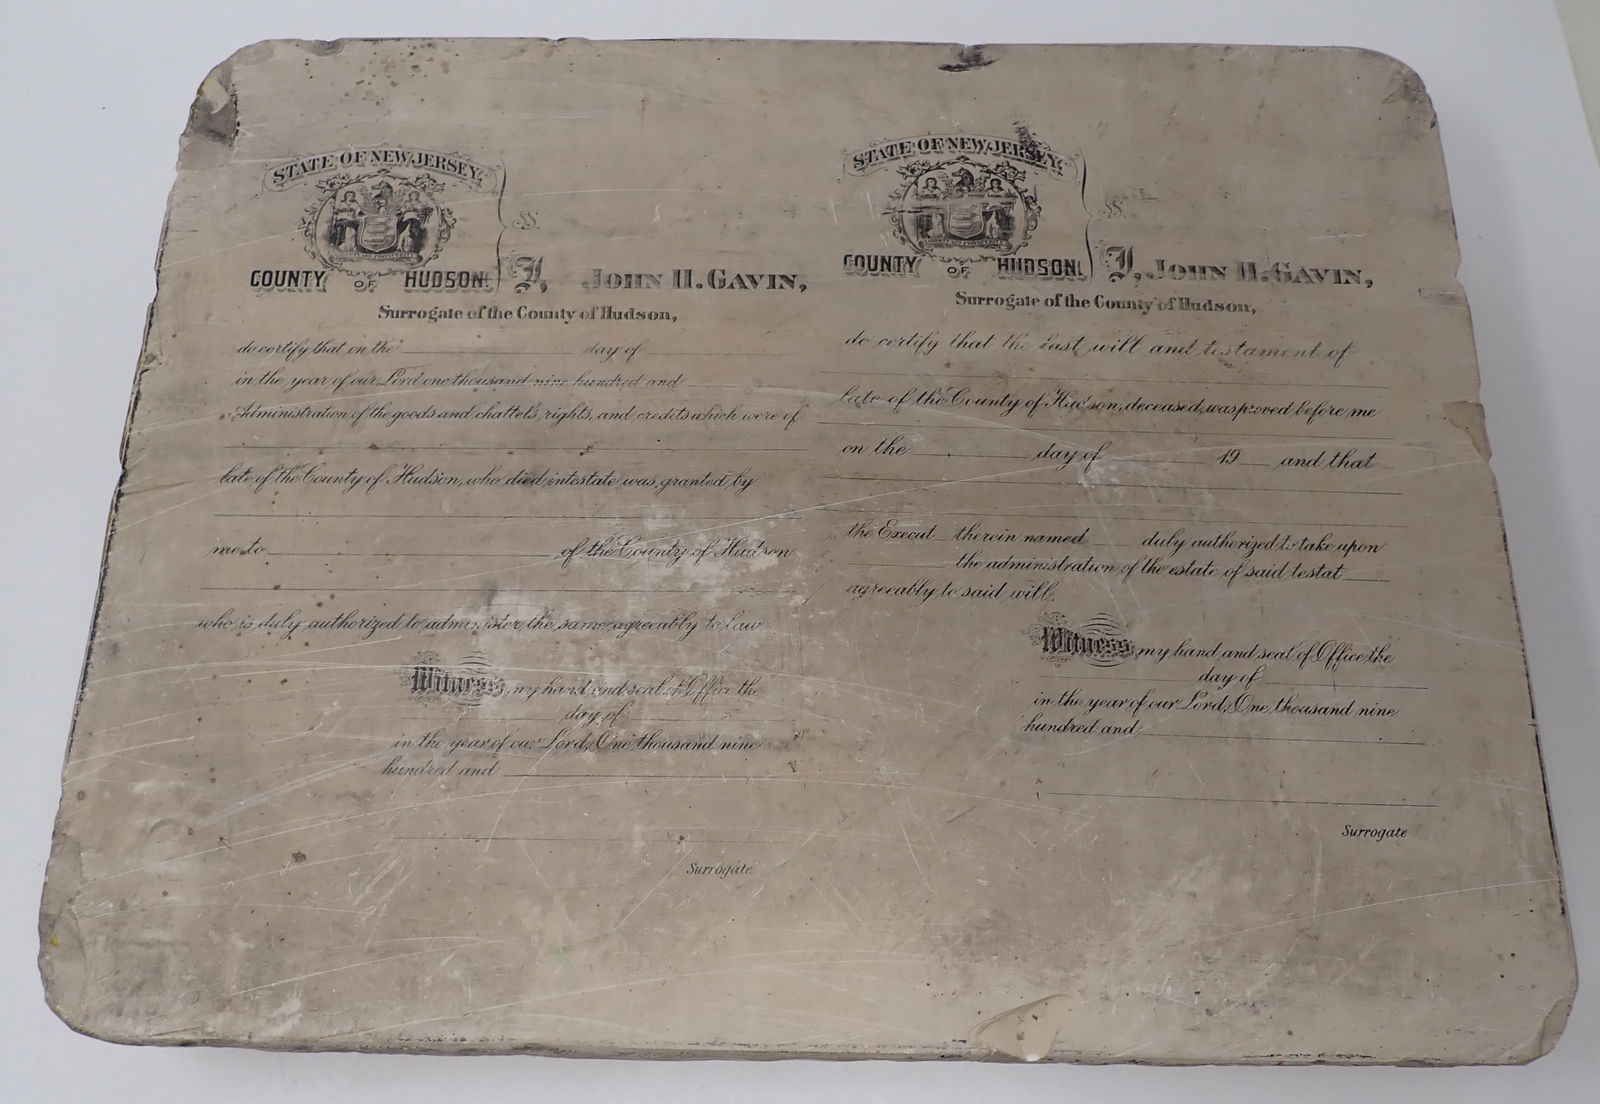 STATE OF NEW JERSEY
SS.
COUNTY OF HUDSON. I, JOHN H. GAVIN,
Surrogate of the County of Hudson,
do certify that on the day of
in the year of our Lord one thousand nine hundred and
Administration of the goods and chattels, rights, and credits which were of
late of the County of Hudson, who died intestate was granted by
me to of the County of Hudson
who is duly authorized to administer the same agreeably to law
Witness my hand and seal of Office the
day of
in the year of our Lord, One thousand nine
hundred and
Surrogate
STATE OF NEW JERSEY
SS.
COUNTY OF HUDSON. I, JOHN H. GAVIN,
Surrogate of the County of Hudson,
do certify that the last will and testament of
late of the County of Hudson, deceased, was proved before me
on the day of 19 and that
the Execut therein named duly authorized to take upon
the administration of the estate of said testat
agreeably to said will.
Witness my hand and seal of Office the
day of
in the year of our Lord, One thousand nine
hundred and
Surrogate